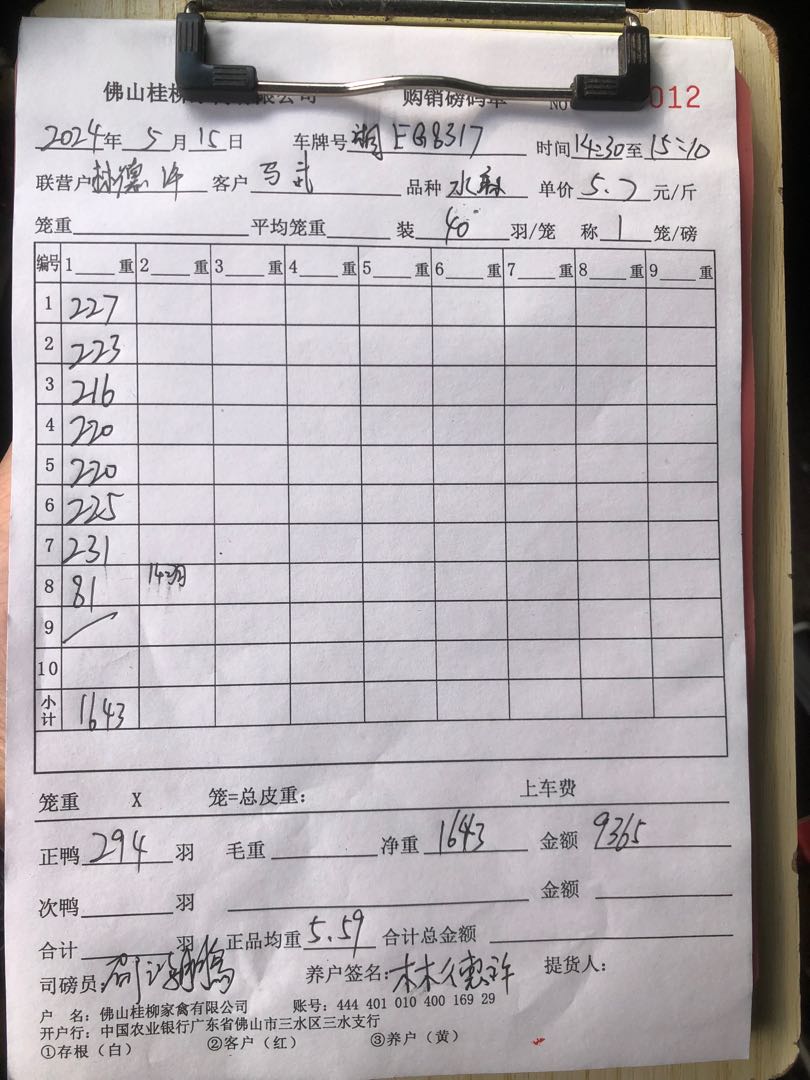 佛山桂柳 有限公司 购销磅码单 NO 012
2024年 5月15日 车牌号 湘EG8317 时间14:30至15:10
联营户 林德许 客户 马武 品种 水 单价 5.7 元/斤
笼重 平均笼重 装 40 羽/笼 称 1 笼/磅
编号 1 重 2 重 3 重 4 重 5 重 6 重 7 重 8 重 9 重
1 227
2 223
3 216
4 220
5 220
6 225
7 231
8 81 14羽
9
10
小计 1643
笼重 X 笼=总皮重: 上车费
正鸭 294 羽 毛重 净重 1643 金额 9365
次鸭 羽 金额
合计 羽 正品均重 5.59 合计总金额
司磅员: 养户签名: 林德许 提货人:
户 名: 佛山桂柳家禽有限公司 账号: 444 401 010 400 169 29
开户行: 中国农业银行广东省佛山市三水区三水支行
①存根(白) ②客户(红) ③养户(黄)